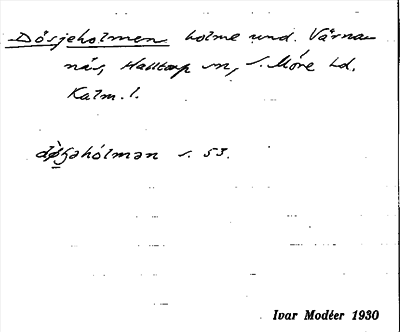 Dösjeholmen holme und. Värna-
näs, Halltorp sn, S. Möre hd.
Kalm. l.
dø̀ʃəhólmən s. 53.
Ivar Modéer 1930